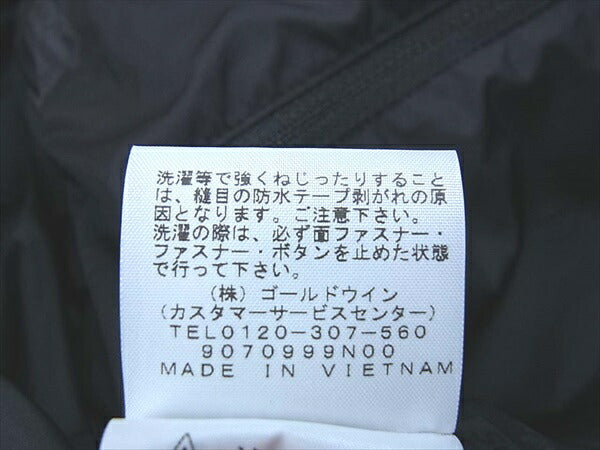 洗濯等で強くねじったりすること
は、縫目の防水テープ剥がれの原
因となります。ご注意下さい。
洗濯の際は、必ず面ファスナー・
ファスナー・ボタンを止めた状態
で行って下さい。
(株)ゴールドウイン
(カスタマーサービスセンター)
TEL0120-307-560
9070999N00
MADE IN VIETNAM